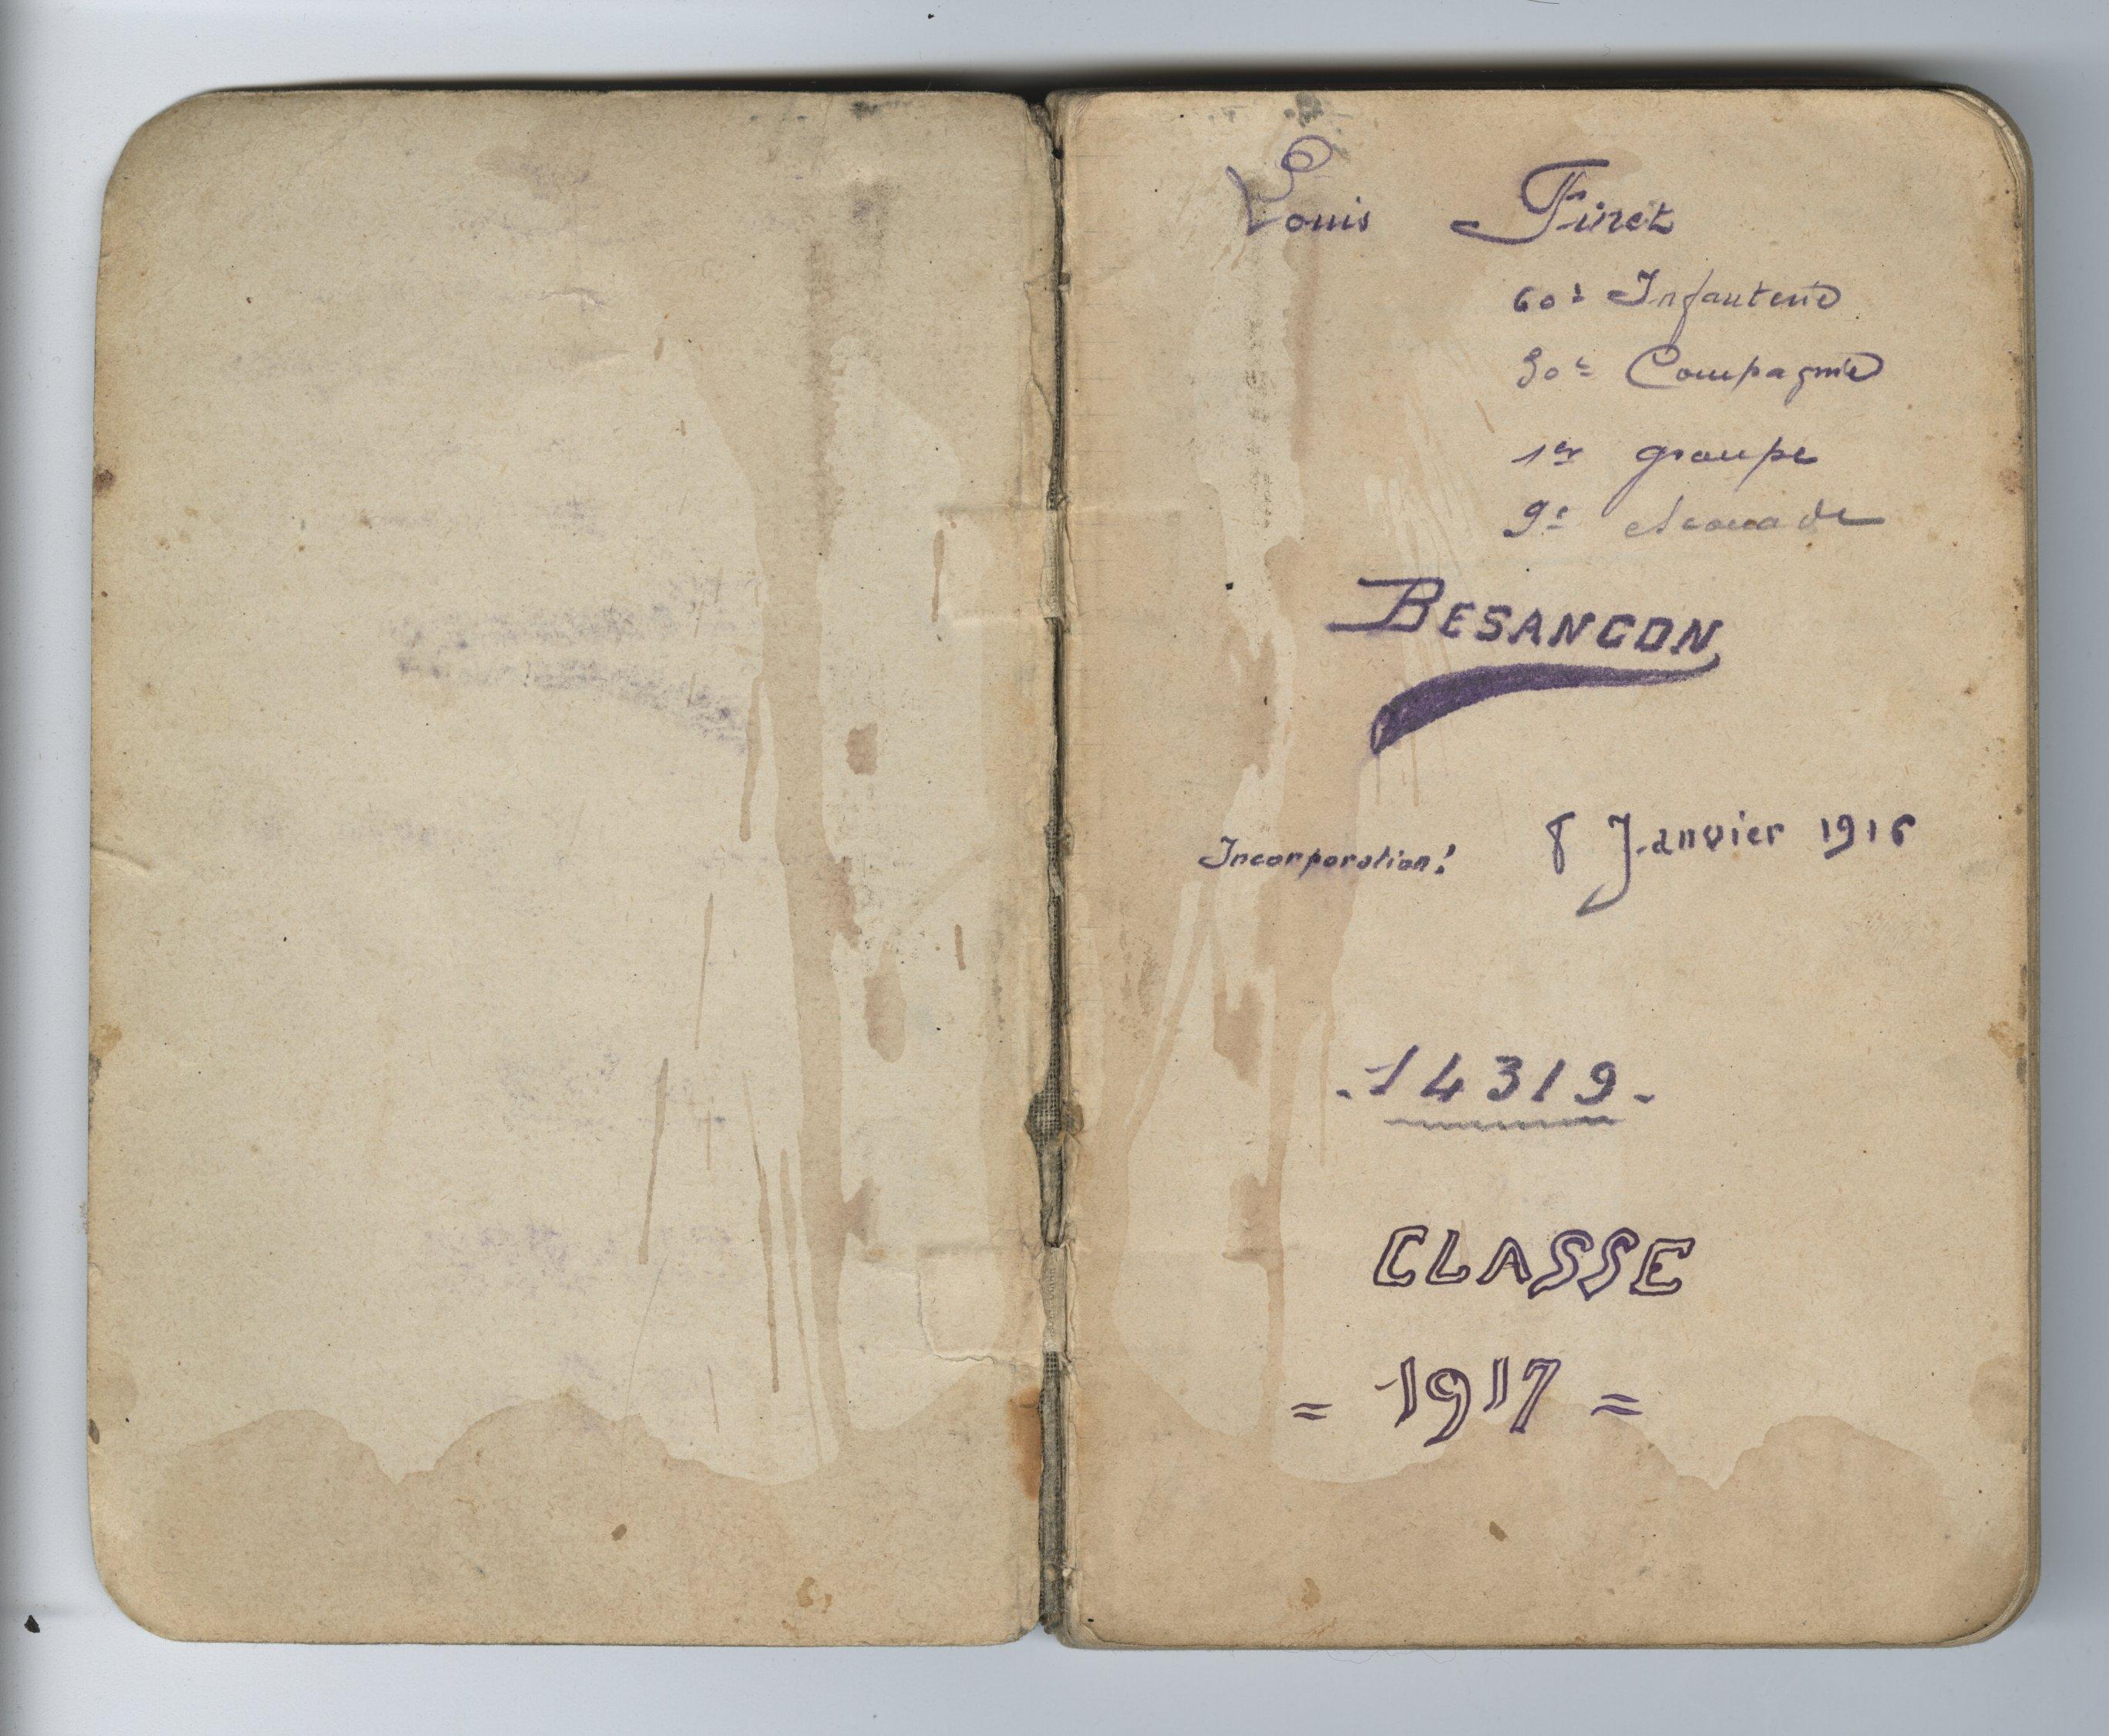 Louis Finet
60e Infanterie
30e Compagnie
1er groupe
9e escouade
BESANCON
Incorporation: 8 Janvier 1916
-14319-
CLASSE
= 1917 =